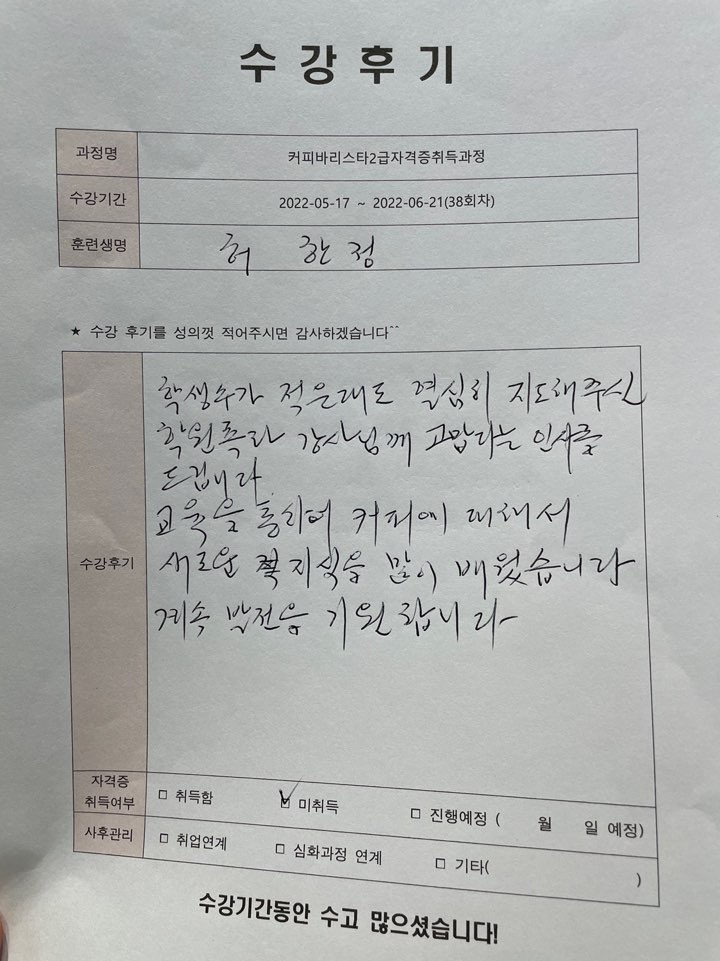 수강후기
과정명 커피바리스타2급자격증취득과정
수강기간 2022-05-17 ~ 2022-06-21(38회차)
훈련생명 허 한정
★ 수강 후기를 성의껏 적어주시면 감사하겠습니다^^
학생수가 적은대도 열심히 지도해주신
학원쪽과 강사님께 고맙다는 인사를
드립니다
교육을 통하여 커피에 대해서
수강후기
새로운 지식을 많이 배웠습니다
계속 발전을 기원합니다
자격증
취득여부 □ 취득함 ☑ 미취득 □ 진행예정 ( 월 일 예정)
사후관리 □ 취업연계 □ 심화과정 연계 □ 기타( )
수강기간동안 수고 많으셨습니다!